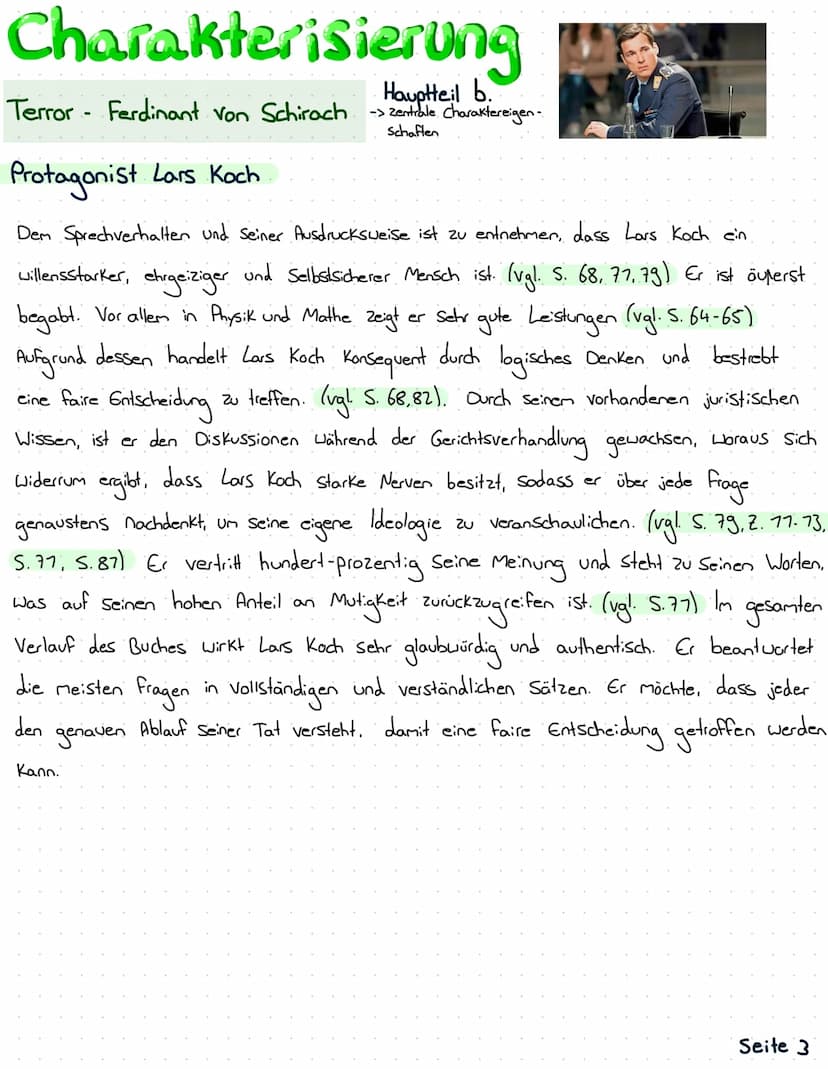 Charakterisierung
Terror - Ferdinant von Schirach
Hauptteil b.
-> zentrale Charaktereigen-
schaften
Protagonist Lars Koch
Dem Sprechverhalten und seiner Ausdrucksweise ist zu entnehmen, dass Lars Koch ein
willensstarker, ehrgeiziger und selbstsicherer Mensch ist. (vgl. S. 68, 77, 79) Er ist äußerst
begabt. Vor allem in Physik und Mathe zeigt er sehr gute Leistungen (vgl. S. 64-65)
Aufgrund dessen handelt Lars Koch konsequent durch logisches Denken und bestrebt
eine faire Entscheidung zu treffen. (vgl. S. 68,82). Durch seinem vorhandenen juristischen
Wissen, ist er den Diskussionen während der Gerichtsverhandlung gewachsen, woraus sich
widerrum ergibt, dass Lars Koch starke Nerven besitzt, sodass er über jede Frage
genaustens nachdenkt, um seine eigene Ideologie zu veranschaulichen. (vgl. S. 79, Z. 11-13,
S. 77, S. 87) Er vertritt hundert-prozentig seine Meinung und steht zu seinen Worten,
was auf seinen hohen Anteil an Mutigkeit zurückzugreifen ist. (vgl. S. 77) Im gesamten
Verlauf des Buches wirkt Lars Koch sehr glaubwürdig und authentisch. Er beantwortet
die meisten Fragen in vollständigen und verständlichen Sätzen. Er möchte, dass jeder
den genauen Ablauf seiner Tat versteht, damit eine faire Entscheidung getroffen werden
kann.
Seite 3